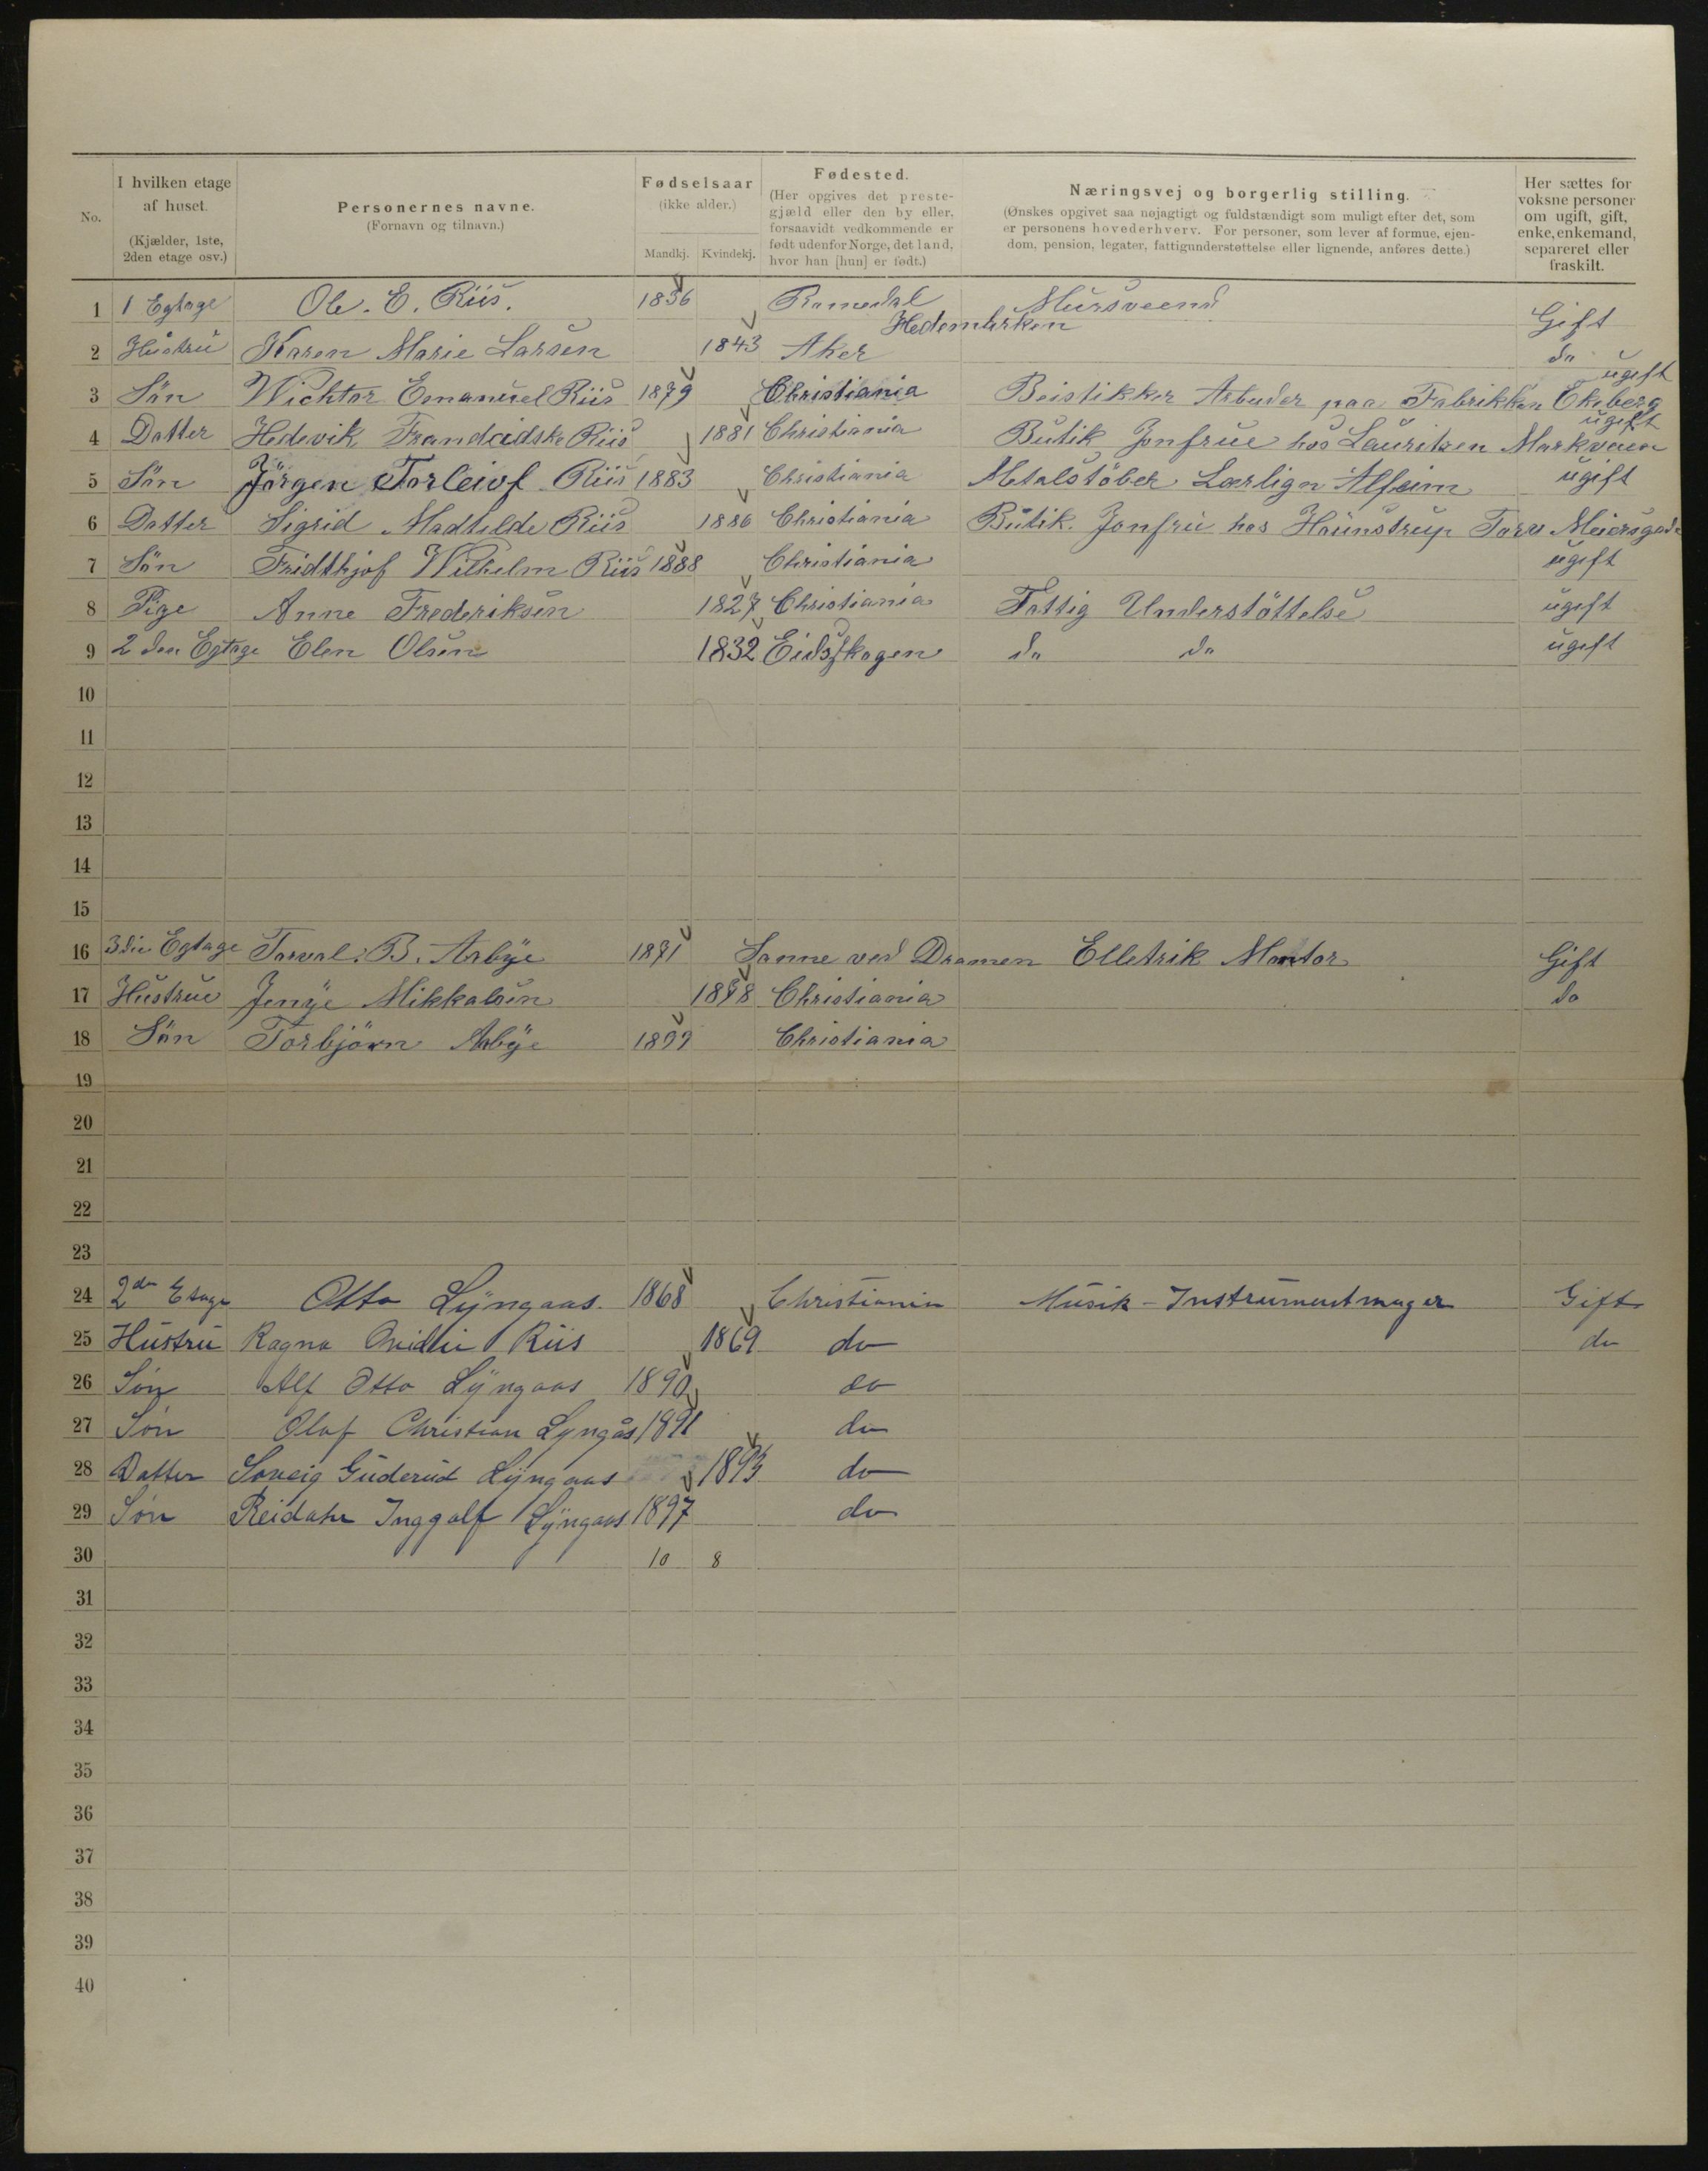 No.
I hvilken etage af huset.
(Kjælder, 1ste, 2den etage osv.)
Personernes navne.
(Fornavn og tilnavn.)
Fødselsaar
(ikke alder.)
Mandkj. Kvindekj.
Fødested.
(Her opgives det prestegjæld eller den by eller, forsaavidt vedkommende er født udenfor Norge, det land, hvor han [hun] er født.)
Næringsvej og borgerlig stilling.
(Ønskes opgivet saa nøjagtigt og fuldstændigt som muligt efter det, som er personens hovederhverv. For personer, som lever af formue, ejendom, pension, legater, fattigunderstøttelse eller lignende, anføres dette.)
Her sættes for voksne personer om ugift, gift, enke, enkemand, separeret eller fraskilt.
1 1 Egtage Ole. E. Riis. 1836 Romedal Hedemarken Mursveend Gift
2 Hustru Karen Marie Larsen 1843 Aker do
3 Sön Wichtor Emanuel Riis 1879 Christiania Beistikker Arbuder paa Fabrikken Ekeberg ugift
4 Datter Hedevik Frandcidske Riis 1881 Christiania Butik Jonfrue hos Lauritzen Markveien ugift
5 Sön Jörgen Torleiof Riis 1883 Christiania Metalstöber Lærligen Alfeim ugift
6 Datter Sigrid Madtilde Riis 1886 Christiania Butik. Jonfru hos Haunstrup Torv Meiersgade
7 Sön Fridthjof Wilhelm Riis 1888 Christiania ugift
8 Pige Anne Frederiksen 1827 Christiania Fattig Understöttelse ugift
9 2 den Egtage Elen Olsen 1832 Eidsskogen do do ugift
10
11
12
13
14
15
16 3die Egtage Torval. B. Arbye 1871 Sanne ved Dramen Elletrik Montor Gift
17 Hustrue Jenye Mikkalsen 1878 Christiania do
18 Sön Torbjörn Arbye 1899 Christiania
19
20
21
22
23
24 2den Etage Otto Lyngaas. 1868 Christiania Musik - Instrumentmager Gift
25 Hustru Ragna Ovidie Riis 1869 do do
26 Sön Alf Otto Lyngaas 1890 do
27 Sön Olaf Christian Lyngås 1891 do
28 Datter Soveig Guderud Lyngaas 1893 do
29 Sön Reidahr Inggolf Lyngaas 1897 do
30 10 8
31
32
33
34
35
36
37
38
39
40